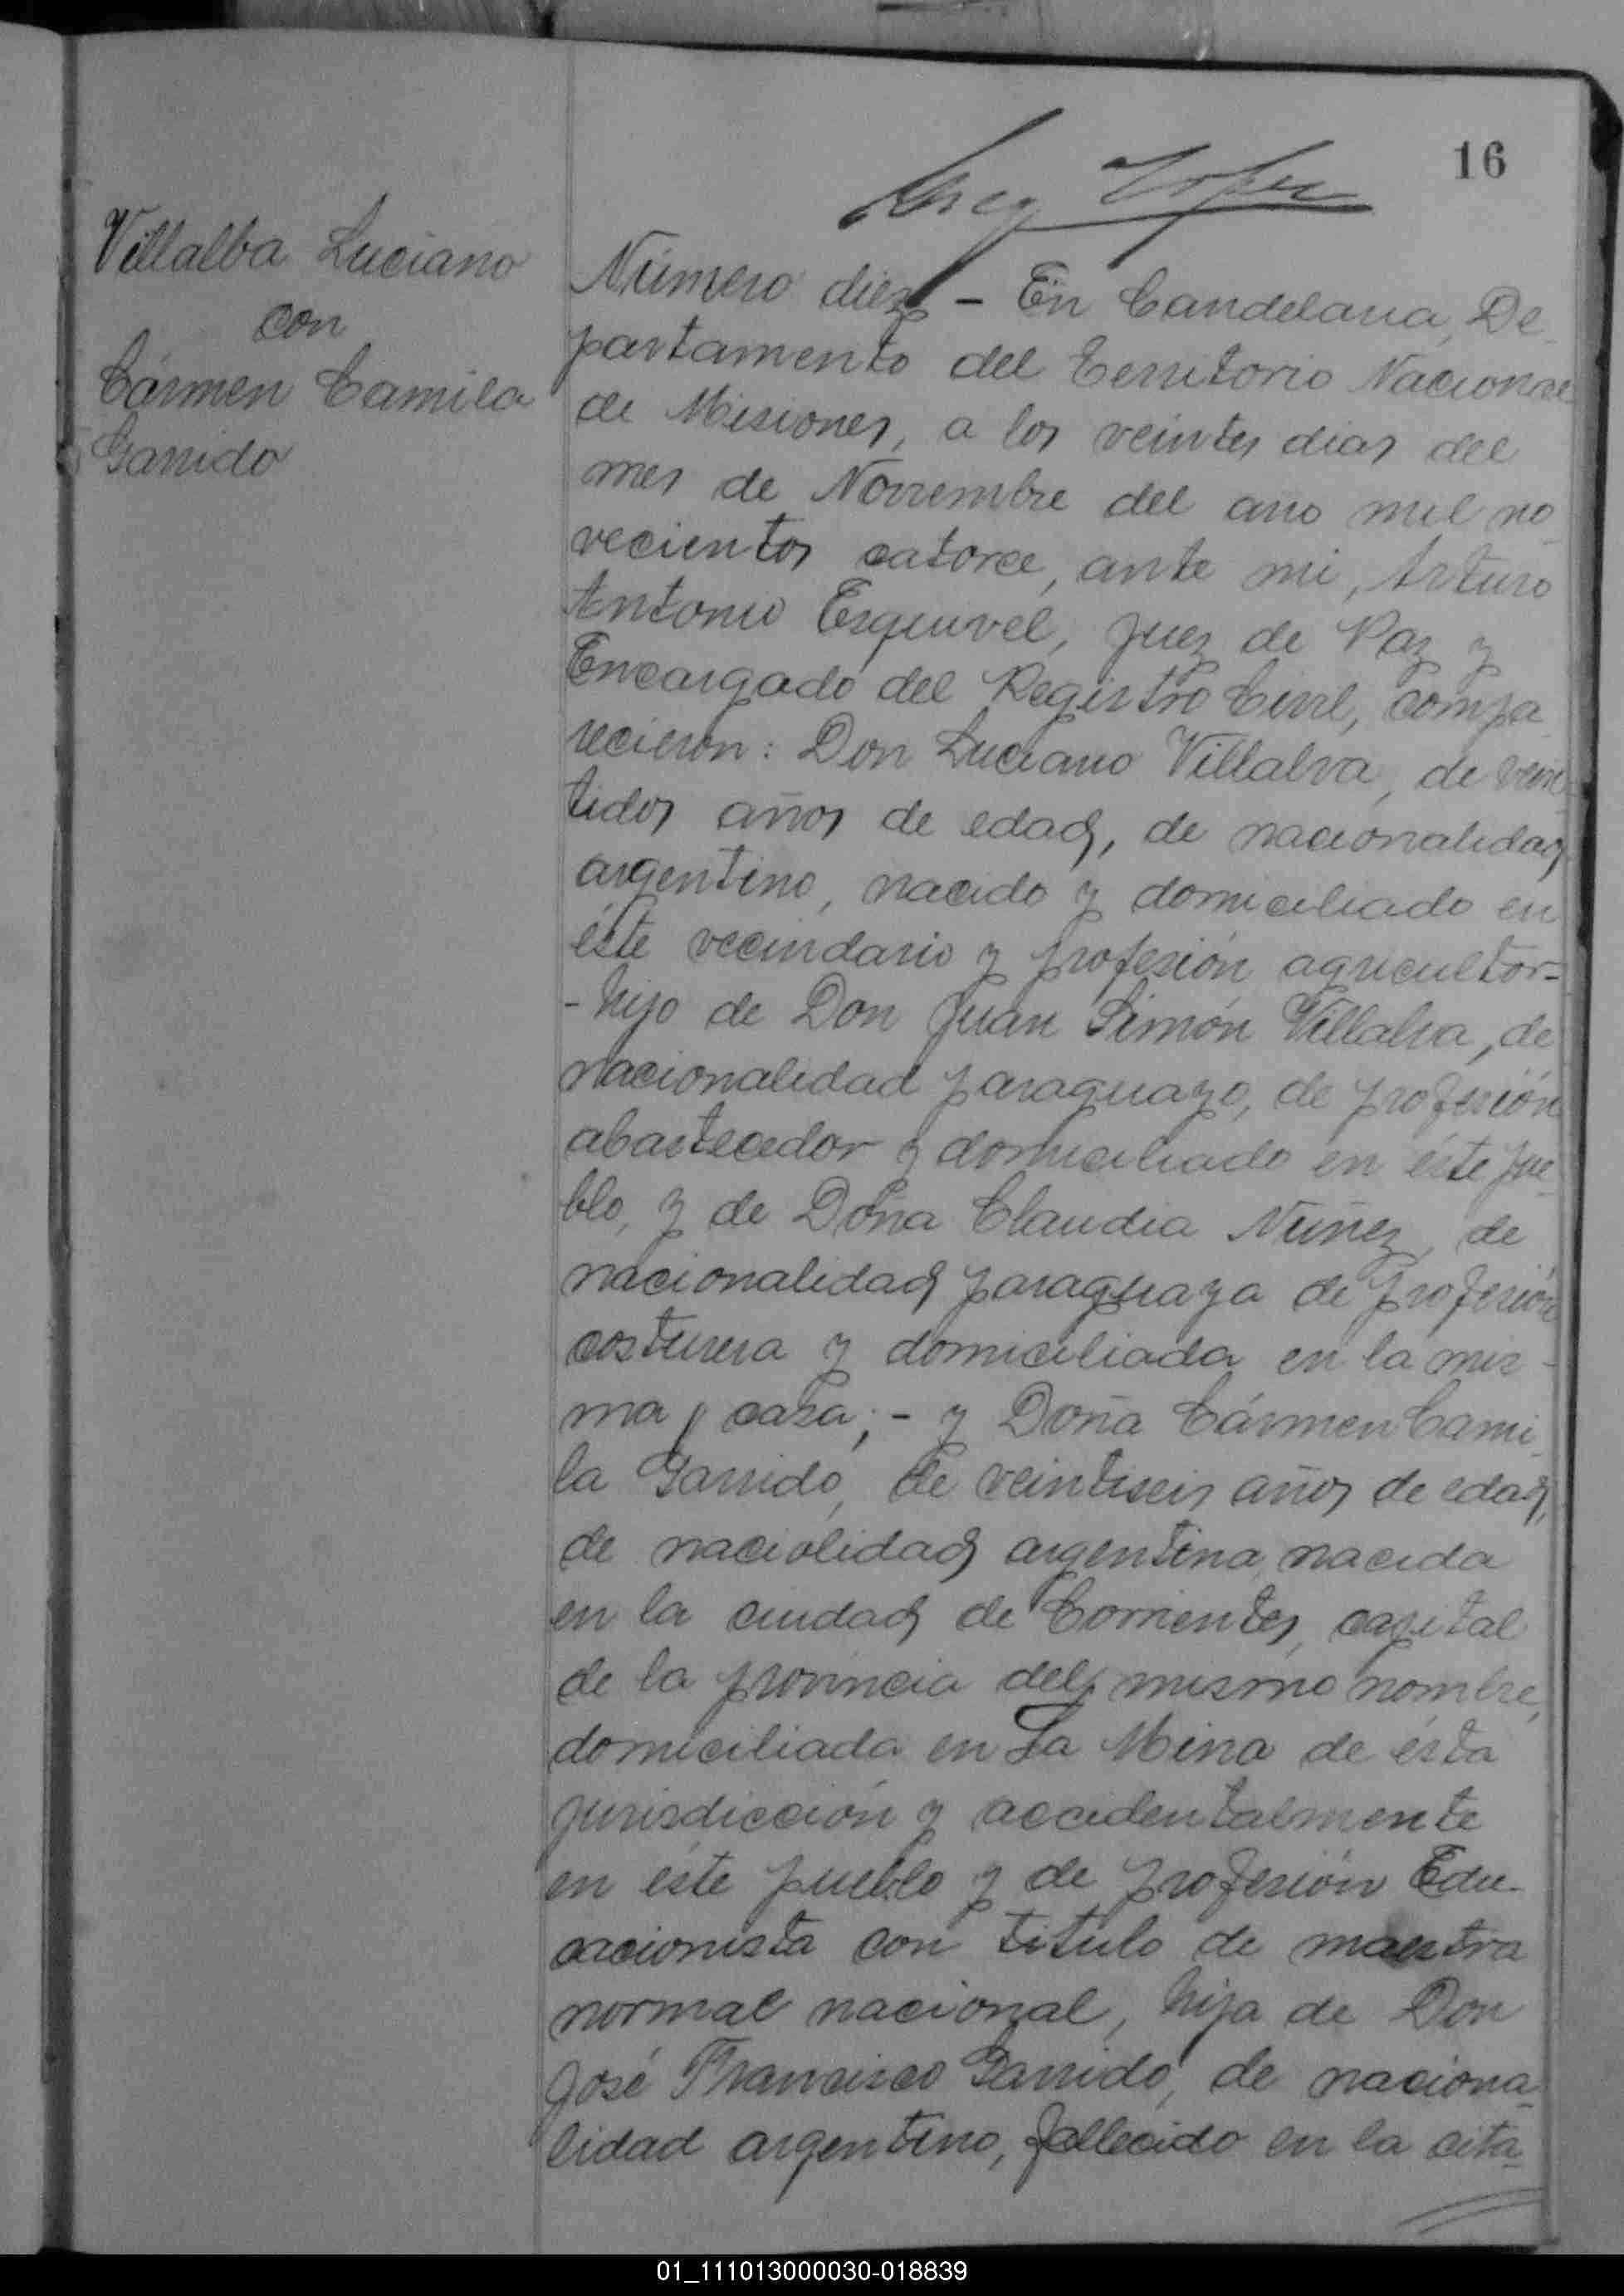 16
Villalba Luciano
con
Cármen Camila
Garrido
Número diez – En Candelaria, De
partamento del Territorio Nacional
de Misiones, a los veintes dias del
mes de Noviembre del año mil no
vecientos catorce, ante mi, Arturo
Antonio Esquivel, Juez de Paz y
Encargado del Registro Civil, compa
recieron: Don Luciano Villalva, de vein
tidos años de edad, de nacionalidad
argentino, nacido y domiciliado en
éste vecindario y profesión agricultor-
- hijo de Don Juan Simón Villalva, de
nacionalidad paraguayo, de profesión
abastecedor y domiciliado en éste pue
blo, y de Doña Claudia Nuñez, de
nacionalidad paraguaya de profesión
costurera y domiciliada en la mis-
ma casa; - y Doña Cármen Cami
la Garrido, de veintiseis años de edad,
de naciolidad argentina, nacida
en la ciudad de Corrientes, capital
de la provincia del mismo nombre,
domiciliada en La Mina de ésta
jurisdicción y accidentalmente
en éste pueblo y de profesión Edu-
cacionista con titulo de maestra
normal nacional, hija de Don
José Francisco Garrido, de naciona-
lidad argentino, fallecido en la cita-
01_111013000030-018839